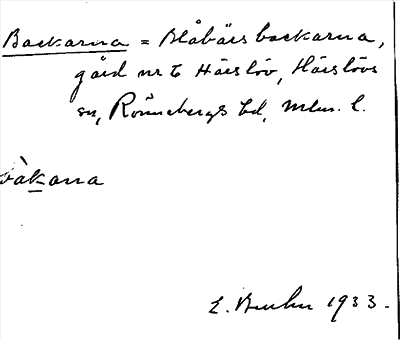 Backarna = Blåbärsbackarna,
gård nr 6 Härslöv, Härslövs
sn, Rönnebergs hd, Mlm. l.
bàkana
E. Bruhn 1933.